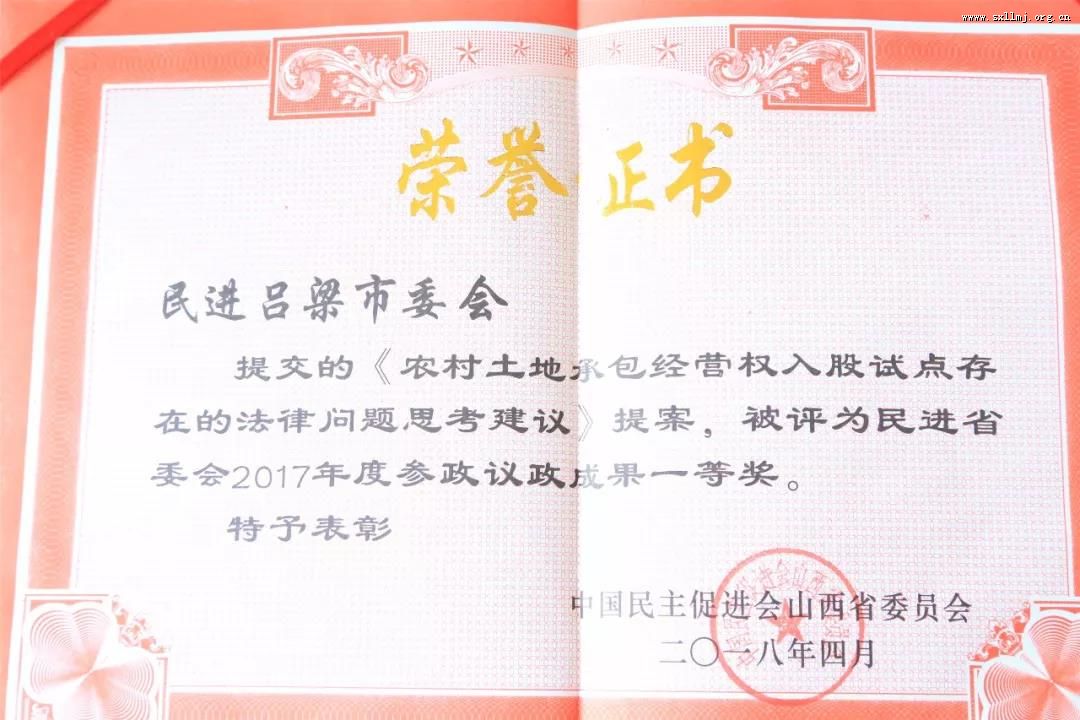 www.sxllmj.org.cn
荣誉证书
民进吕梁市委会
提交的《农村土地承包经营权入股试点存
在的法律问题思考建议》提案，被评为民进省
委会2017年度参政议政成果一等奖。
特予表彰
中国民主促进会山西省委员会
二〇一八年四月